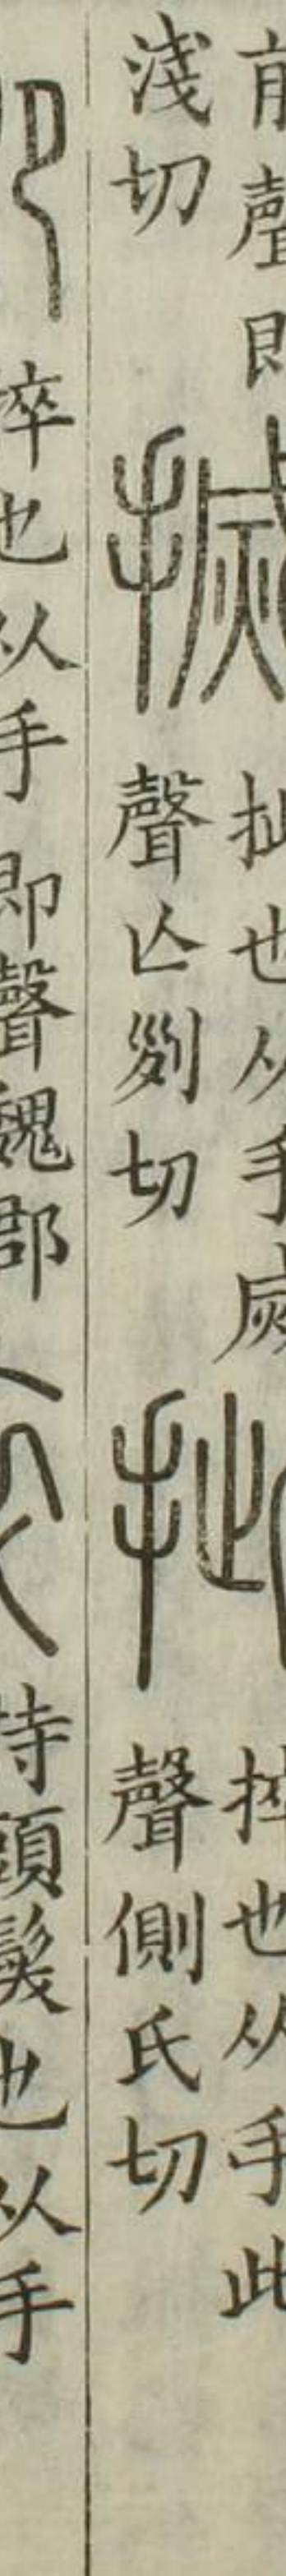 前聲即
淺切
搣
㧗也从手烕
聲亾列切
㧗
捽也从手此
聲側氏切
捽也从手即聲魏郡
持頭髮也从手